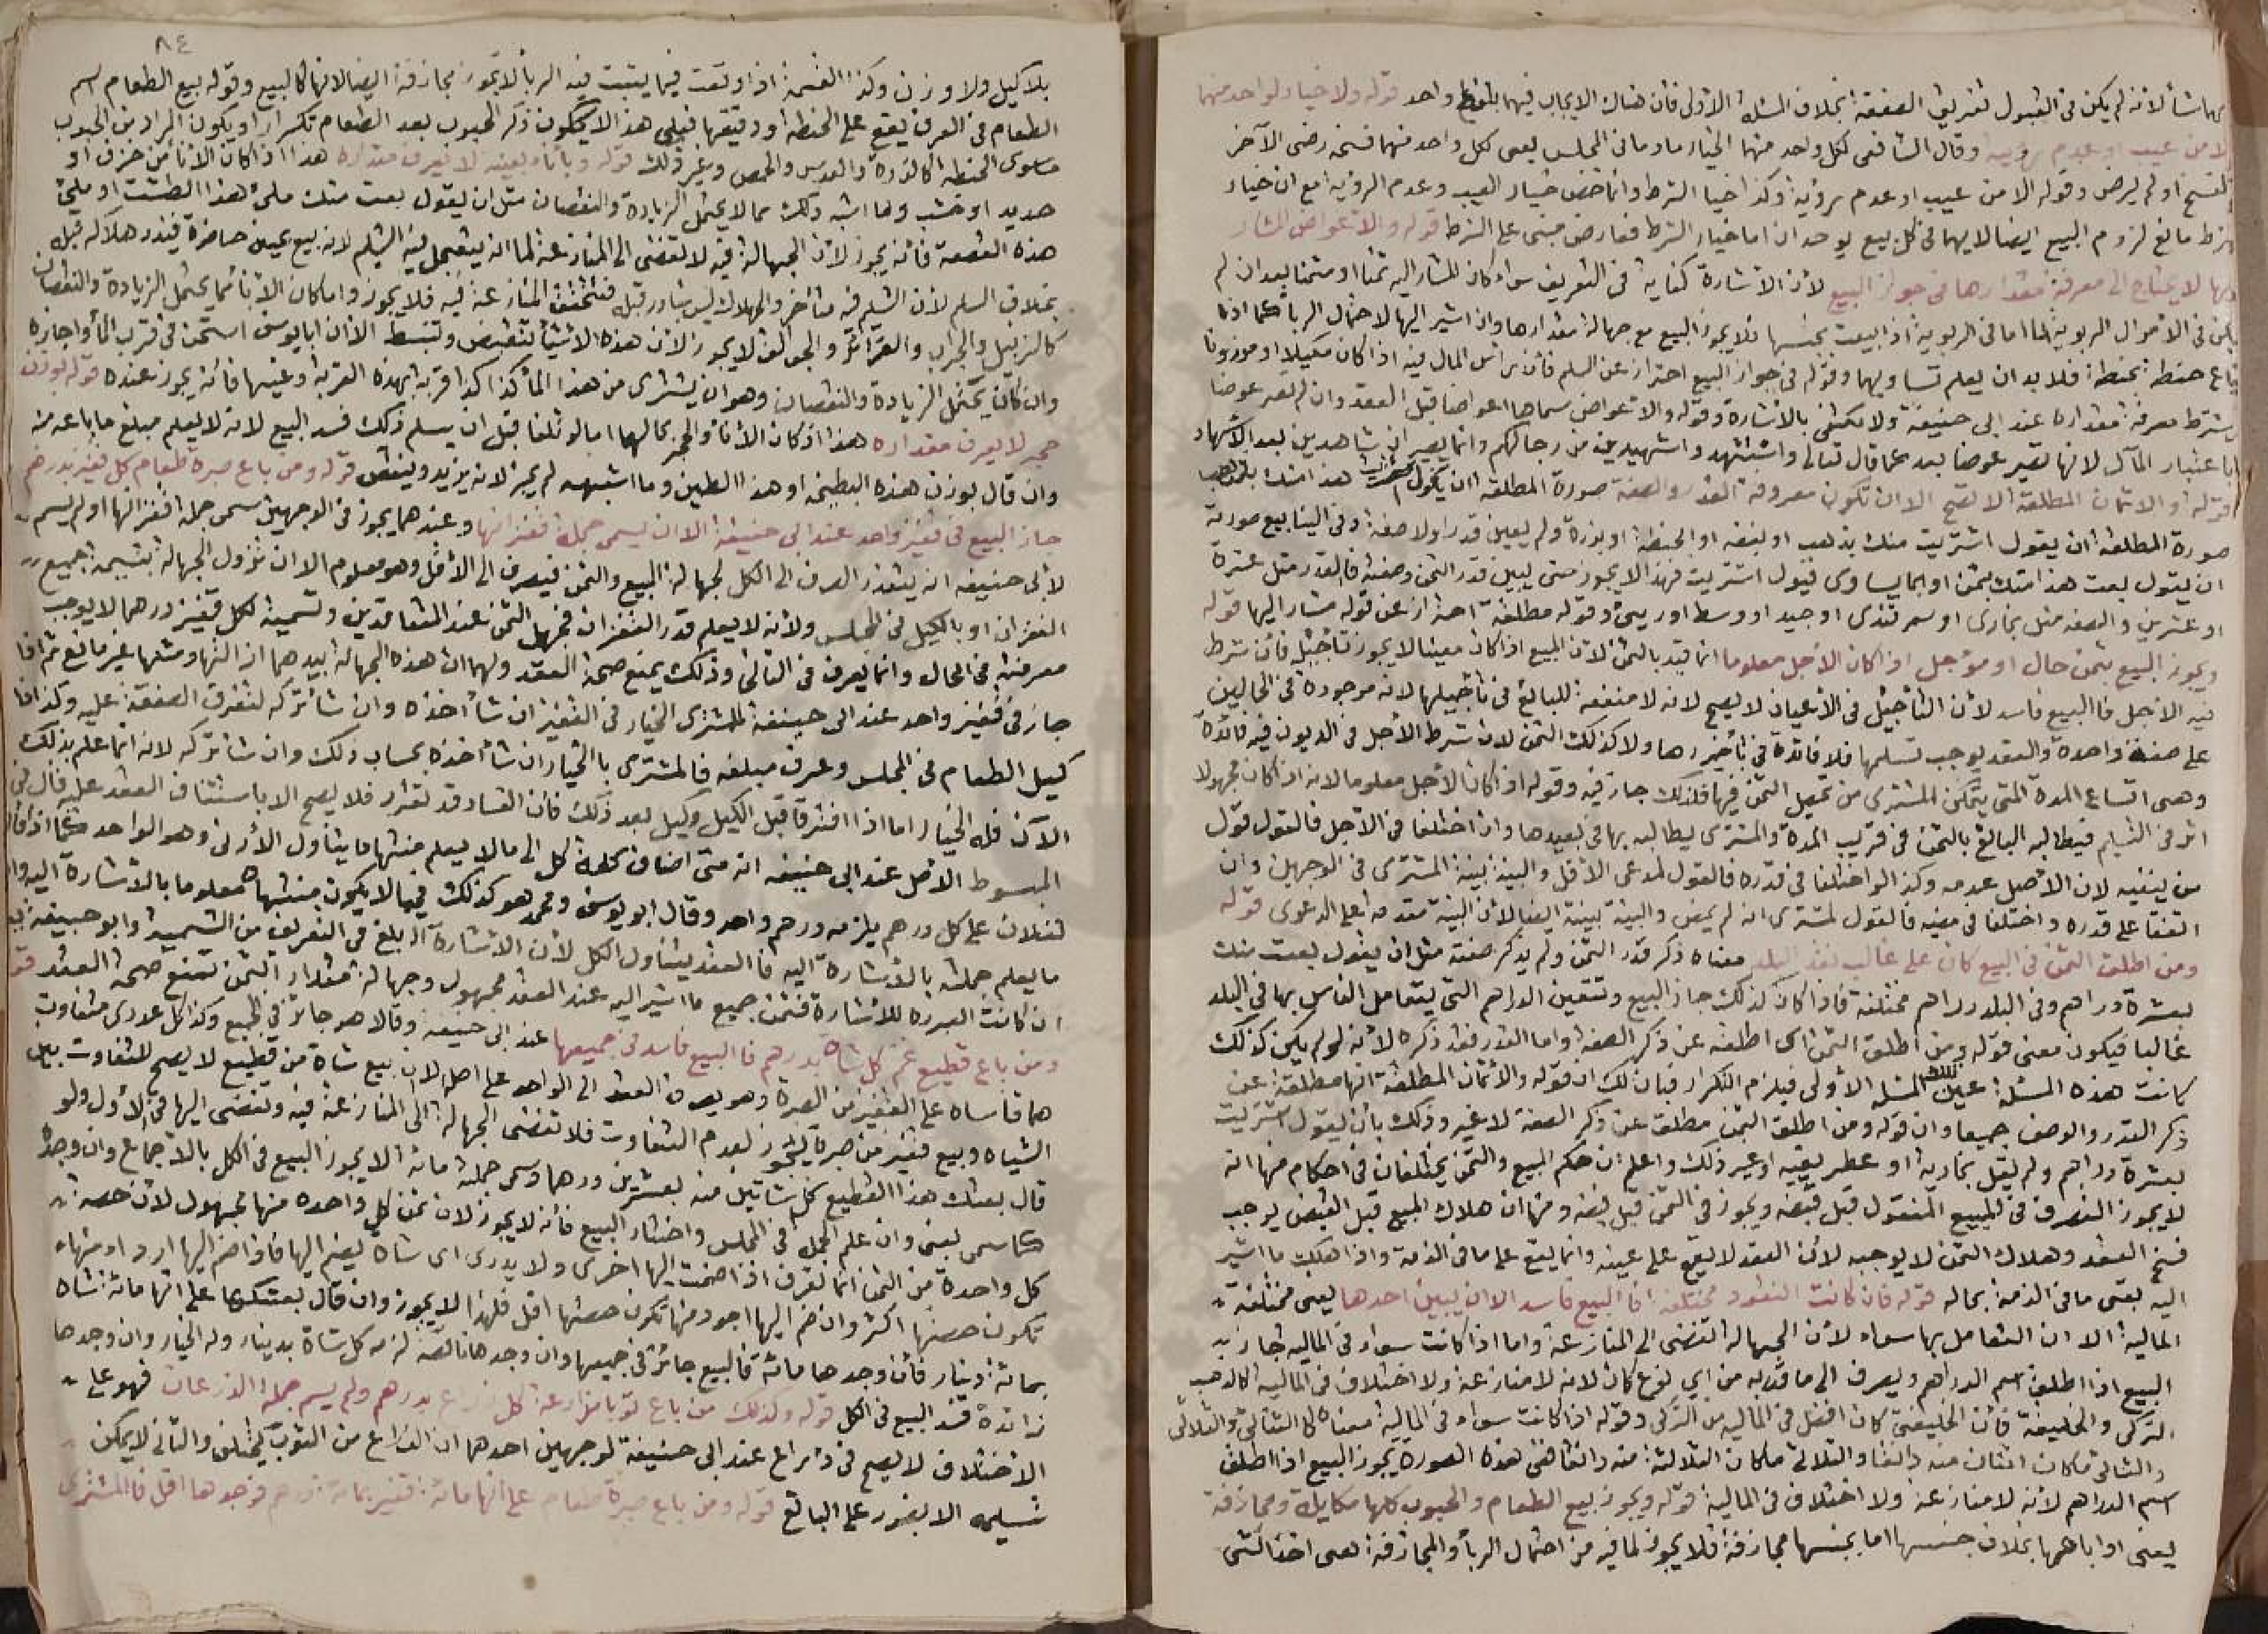 ايهما شاء لانه لم يكن فى القبول تفريق الصفقة بخلاف المسئلة الاولى فان هناك الايجاب فيهما بلفظ واحد قوله ولا خيار لواحد منهما
الا من عيب او عدم رؤية وقال الشافعى لكل واحد منهما الخيار ما دما فى المجلس يعنى لكل واحد منهما فسخه رضى الآخر
بالفسخ او لم يرض وقوله الا من عيب او عدم رؤية وكذا خيار الشرط وانما خص خيار العيب وعدم الرؤية مع ان خيار
الشرط مانع لزوم البيع ايضا لانهما فى كل بيع يوجدان اما خيار الشرط فعارض مبنى على الشرط قوله والاعواض المشار
اليها لا يحتاج الى معرفة مقدارها فى جواز البيع لان الاشارة كفاية فى التعريف سواء كان المشار اليه ثمنا او مثمنا بعد ان لم
يكن فى الاموال الربوية اما فى الربوية اذا بيعت بجنسها فلا يجوز البيع مع جهالة مقدارها وان اشير اليها لاحتمال الربا كما اذا
باع حنطة بحنطة فلا بد ان يعلم تساويهما وقوله فى جواز البيع احتراز عن السلم فان رأس المال فيه اذا كان مكيلا او موزونا
يشترط معرفة مقداره عند ابى حنيفة ولا يكتفى بالاشارة وقوله والاعواض سماها اعواضا قبل العقد وان لم تصر عوضا
باعتبار المآل لانها تصير عوضا بعد كما قال تعالى واستشهدوا شهيدين من رجالكم وانما يصيران شاهدين بعد الاشهاد
قوله والاثمان المطلقة لا تصح الا ان تكون معروفة القدر والصفة صورة المطلقة ان يقول بعت هذا منك
صورة المطلقة ان يقول اشتريت منك بذهب او بفضة او بحنطة او بذرة ولم يعين قدرا ولا صفة وفى الينابيع صورته
ان يقول بعت هذا منك بثمن او بما يساوى فيقول اشتريت فهذا لا يجوز حتى يبين قدر الثمن وصفته فالقدر مثل عشرة
او عشرين والصفة مثل بخارى او سمرقندى او جيد او وسط او ردىء وقوله مطلقة احتراز عن قوله مشار اليها قوله
ويجوز البيع بثمن حال او مؤجل اذا كان الاجل معلوما انما قيد بالثمن لان المبيع اذا كان معينا لا يجوز تأجيله فان شرط
فيه الاجل فالبيع فاسد لان التأجيل فى الاعيان لا يصح لانه لا منفعة للبائع فى تأجيلها لانه موجودة فى الحالين
على صفة واحدة والعقد يوجب تسليمها فلا فائدة فى تأخيرها ولا كذلك الثمن لان شرط الاجل فى الديون فيه فائدة
وهى اتساع المدة التى يتمكن المشترى من تحصيل الثمن فيها فلذلك جاز فيه وقوله اذا كان الاجل معلوما لانه اذا كان مجهولا
اثر فى التسليم فيطالبه البائع بالثمن فى قريب المدة والمشترى يطالبه بها فى بعيدها وان اختلفا فى الاجل فالقول قول
من ينفيه لان الاصل عدمه وكذا لو اختلفا فى قدره فالقول لمدعى الاقل والبينة بينة المشترى فى الوجهين وان
اتفقا على قدره واختلفا فى مضيه فالقول للمشترى انه لم يمض والبينة بينته ايضا لان البينة مقدمة على الدعوى قوله
ومن اطلق الثمن فى البيع كان على غالب نقد البلد معناه ذكر قدر الثمن ولم يذكر صفته مثل ان يقول بعت منك
بعشرة دراهم وفى البلد دراهم مختلفة فاذا كان كذلك جاز البيع وتتعين الدراهم التى يتعامل الناس بها فى البلد
غالبا فيكون معنى قوله ومن اطلق الثمن اى اطلقه عن ذكر الصفة واما القدر فقد ذكره لانه لو لم يكن كذلك
كانت هذه المسئلة عين تلك المسئلة الاولى فيلزم التكرار فبان لك ان قوله والاثمان المطلقة انها مطلقة عن
ذكر القدر والوصف جميعا وان قوله ومن اطلق الثمن مطلق عن ذكر الصفة لا غير وذلك بان يقول اشتريت
بعشرة دراهم ولم يقل بخارية او عطريفية او غير ذلك واعلم ان حكم المبيع والثمن يختلفان فى احكام منها انه
لا يجوز التصرف فى المبيع المنقول قبل قبضه ويجوز فى الثمن قبل قبضه ومنها ان هلاك المبيع قبل القبض يوجب
فسخ العقد وهلاك الثمن لا يوجبه لان العقد لا يقع على عينه وانما يقع على ما فى الذمة واذا هلك ما اشير
اليه بقى ما فى الذمة بحاله قوله فان كانت النقود مختلفة فالبيع فاسد الا ان يبين احدها يعنى مختلفة
المالية الا ان التعامل بها سواء لان الجهالة تفضى الى المنازعة واما اذا كانت سواء فى المالية جاز
البيع اذا اطلق اسم الدراهم ويصرف الى ما قدر به من اى نوع كان لانه لا منازعة ولا اختلاف فى المالية كالذهب
التركى والخليفتى فان الخليفتى كان افضل فى المالية من التركى وقوله اذا كانت سواء فى المالية معناه كالثنائى والثلاثى
والثنائى ما كان اثنان منه دانقا والثلاثى ما كان الثلاثة منه دانقا ففى هذه الصورة يجوز البيع اذا اطلق
اسم الدراهم لانه لا منازعة ولا اختلاف فى المالية قوله ويجوز بيع الطعام والحبوب كلها مكايلة ومجازفة
يعنى اذا باعها بخلاف جنسها اما بجنسها مجازفة فلا يجوز لما فيه من احتمال الربا والمجازفة هى اخذ الشئ
٨٤
بلا كيل ولا وزن وكذا القسمة اذا وقعت فيما يثبت فيه الربا لا يجوز مجازفة ايضا لانها كالبيع وقوله بيع الطعام اسم
الطعام فى العرف يقع على الحنطة ودقيقها فعلى هذا لا يكون ذكر الحبوب بعد الطعام تكرارا ويكون المراد من الحبوب
ما سوى الحنطة كالذرة والعدس والحمص وغير ذلك قوله وباناء بعينه لا يعرف مقداره هذا اذا كان الاناء من خزف او
حديد او خشب وما اشبه ذلك مما لا يحتمل الزيادة والنقصان مثل ان يقول بعت منك ملئ هذا الطشت او ملئ
هذه القصعة فانه يجوز لان الجهالة فيه لا تفضى الى المنازعة لما انه يتعجل فيه التسليم لانه بيع عين حاضرة فيندر هلاكه قبله
بخلاف السلم لان التسليم فيه متأخر والهلاك ليس بنادر قبله فتتحقق المنازعة فيه فلا يجوز واما كان الاناء مما يحتمل الزيادة والنقصان
كالزنبيل والجراب والغرائر والجوالق لا يجوز لان هذه الاشياء تنقبض وتنبسط الا ان ابا يوسف استحسن فى قرب الماء واجازه
وان كان يحتمل الزيادة والنقصان وهو ان يشترى من هذا الماء كذا كذا قربة بهذه القربة وعينها فانه يجوز عنده قوله بوزن
حجر لا يعرف مقداره هذا اذا كان الاناء والحجر بحالهما اما لو تلفا قبل ان يسلم ذلك فسد البيع لانه لا يعلم مبلغ ما باعه منه
وان قال بوزن هذه البطيخة او هذا الطين وما اشبهه لم يجز لانه يزيد وينقص قوله ومن باع صبرة طعام كل قفيز بدرهم
جاز البيع فى قفيز واحد عند ابى حنيفة الا ان يسمى جملة قفزانها وعندهما يجوز فى الوجهين سمى جملة قفزانها او لم يسم
لابى حنيفة انه يتعذر الصرف الى الكل لجهالة المبيع والثمن فيصرف الى الاقل وهو معلوم الا ان تزول الجهالة بتسمية جميع
القفزان او بالكيل فى المجلس ولانه لا يعلم قدر القفزان فيجهل الثمن عند المتعاقدين وتسمية لكل قفيز درهما لا يوجب
معرفته فى الحال وانما يعرف فى الثانى وذلك يمنع صحة العقد ولهما ان هذه الجهالة بيدهما ازالتها ومثلها غير مانع ثم اذا
جاز فى قفيز واحد عند ابى حنيفة للمشترى الخيار فى القفيز ان شاء اخذه وان شاء تركه لتفرق الصفقة عليه وكذا اذا
كيل الطعام فى المجلس وعرف مبلغه فالمشترى بالخيار ان شاء اخذه بحساب ذلك وان شاء تركه لانه انما علم بذلك
الآن فله الخيار اما اذا افترقا قبل الكيل وكيل بعد ذلك فان الفساد قد تقرر فلا يصح الا باستئناف العقد عليه قال فى
المبسوط الاصل عند ابى حنيفة انه متى اضاف كلمة كل الى ما لا يعلم منتهاه يتناول الادنى وهو الواحد كما اذا قال
لفلان على كل درهم يلزمه درهم واحد وقال ابو يوسف ومحمد هو كذلك فيما لا يكون منتهاه معلوما بالاشارة اليه واما
ما يعلم جملته بالاشارة اليه فالعقد يتناول الكل لان الاشارة ابلغ فى التعريف من التسمية وابو حنيفة
ان كانت الصبرة للاشارة فثمن جميع ما اشير اليه عند العقد مجهول وجهالة مقدار الثمن تمنع صحة العقد قوله
ومن باع قطيع غنم كل شاة بدرهم فالبيع فاسد فى جميعها عند ابى حنيفة وقالا هو جائز فى الجميع وكذا كل عددى متفاوت
هما قاساه على القفيز من الصبرة وهو يصرف العقد الى الواحد على اصله الا ان بيع شاة من قطيع لا يصح للتفاوت بين
الشياه وبيع قفيز من صبرة يجوز لعدم التفاوت فلا تفضى الجهالة الى المنازعة فيه وتفضى اليها فى الاول ولو
قال بعتك هذا القطيع كل شاتين منه بعشرين درهما وسمى جملته مائة لا يجوز البيع فى الكل بالاجماع وان وجده
كما سمى يعنى وان علم الجملة فى المجلس واختار البيع فانه لا يجوز لان ثمن كل واحدة منها مجهول لان حصة
كل واحدة من الثمن انما تعرف اذا ضمت اليها اخرى ولا يدرى اى شاة يضم اليها فاذا ضم اليها اردأ منها
تكون حصتها اكثر وان ضم اليها اجود منها تكون حصتها اقل فلهذا لا يجوز وان قال بعتكها على انها مائة شاة
بمائة دينار فان وجدها مائة فالبيع جائز فى جميعها وان وجدها ناقصة لزمه كل شاة بدينار وله الخيار وان وجدها
زائدة فسد البيع فى الكل قوله وكذلك من باع ثوبا مذارعة كل ذراع بدرهم ولم يسم جملة الذرعان فهو على
الاختلاف لا يصح فى ذراع عند ابى حنيفة لوجهين احدهما ان الذراع من الثوب يختلف والثانى لا يمكن
تسليمه الا بضرر على البائع قوله ومن باع صبرة طعام على انها مائة قفيز بمائة درهم فوجدها اقل فالمشترى